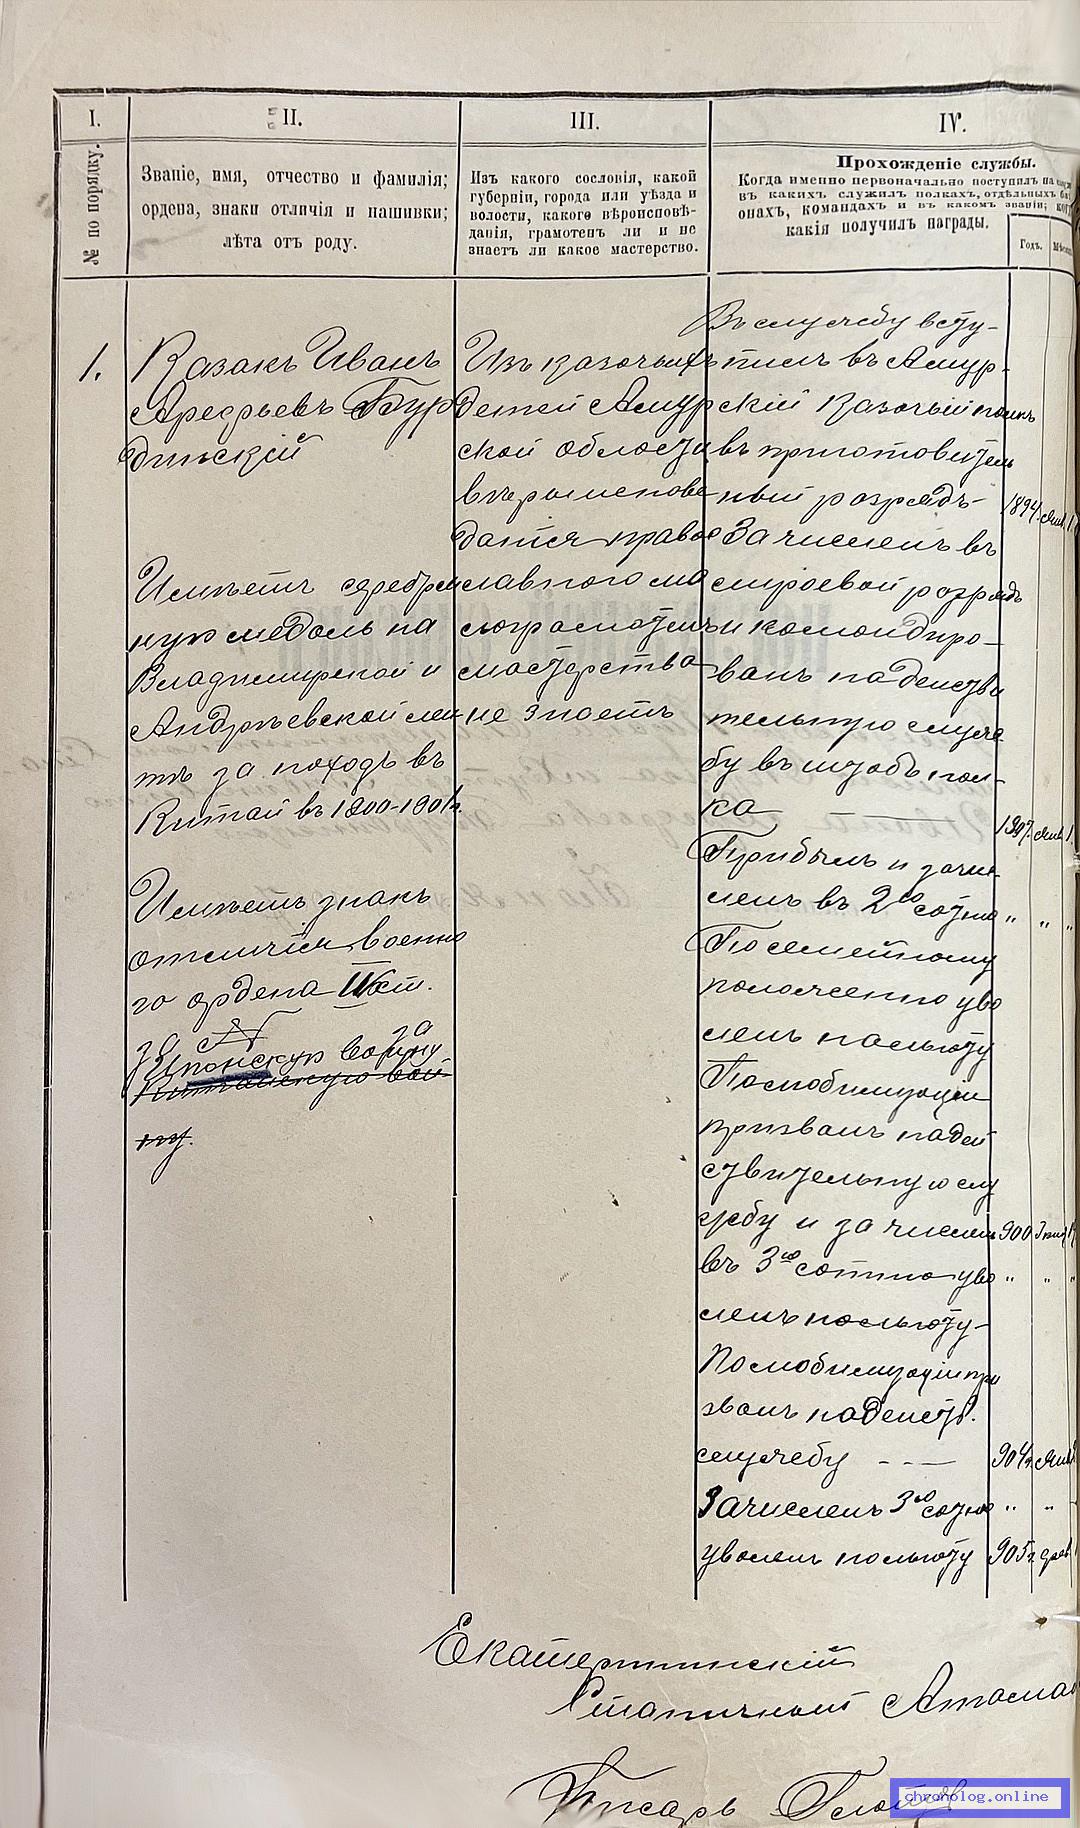 I.
II.
III.
IV.
№ по порядку.
Званіе, имя, отчество и фамилія;
ордена, знаки отличія и нашивки;
лѣта отъ роду.
Изъ какого сословія, какой
губерніи, города или уѣзда и
волости, какого вѣроисповѣ-
данія, грамотенъ ли и не
знаетъ ли какое мастерство.
Прохожденіе службы.
Когда именно первоначально поступилъ на
въ какихъ служилъ полкахъ, отдѣльныхъ ба
онахъ, командахъ и въ какомъ званіи; ког
какія получилъ награды.
Годъ.
Мѣся
1.
Казакъ Иванъ
Арефьевъ Бур
динскій
Имѣетъ серебрян
ную медаль на
Владимирской и
Андреевской лен
тѣ за походъ въ
Китай въ 1900-1901г.
Имѣетъ знакъ
отличія военно
го ордена IV ст.
за
за
Японскую войну
Китайскую вой
ну.
Изъ казачьихъ
детей Амур
ской области
вѣроисповѣ
данія право
славнаго ма
лограмотенъ
мастерства
не знаетъ
Въ службу всту-
пилъ въ Амур-
скій казачій полкъ
въ приготовитель
ный разрядъ-
1894 Янв 1
Зачисленъ въ
строевой разрядъ
и командиро-
ванъ на действи
тельную служ
бу въ штабъ пол-
ка
1897. Янв 1.
Прибылъ и зачи
сленъ въ 2ую сотню " " "
По семейному
положенію уво
ленъ на льготу
По мобилизаціи
призванъ на дей
ствительную слу
жбу и зачисленъ 900
въ 3ю сотню уво " " "
ленъ на льготу-
По мобилизаціи при
званъ на действ.
службу --- 904г. Янв
Зачисленъ 3ю сотню " "
уволенъ на льготу 905г.
Екатерининскій
Станичный Атаман
Писарь
chronolog.online